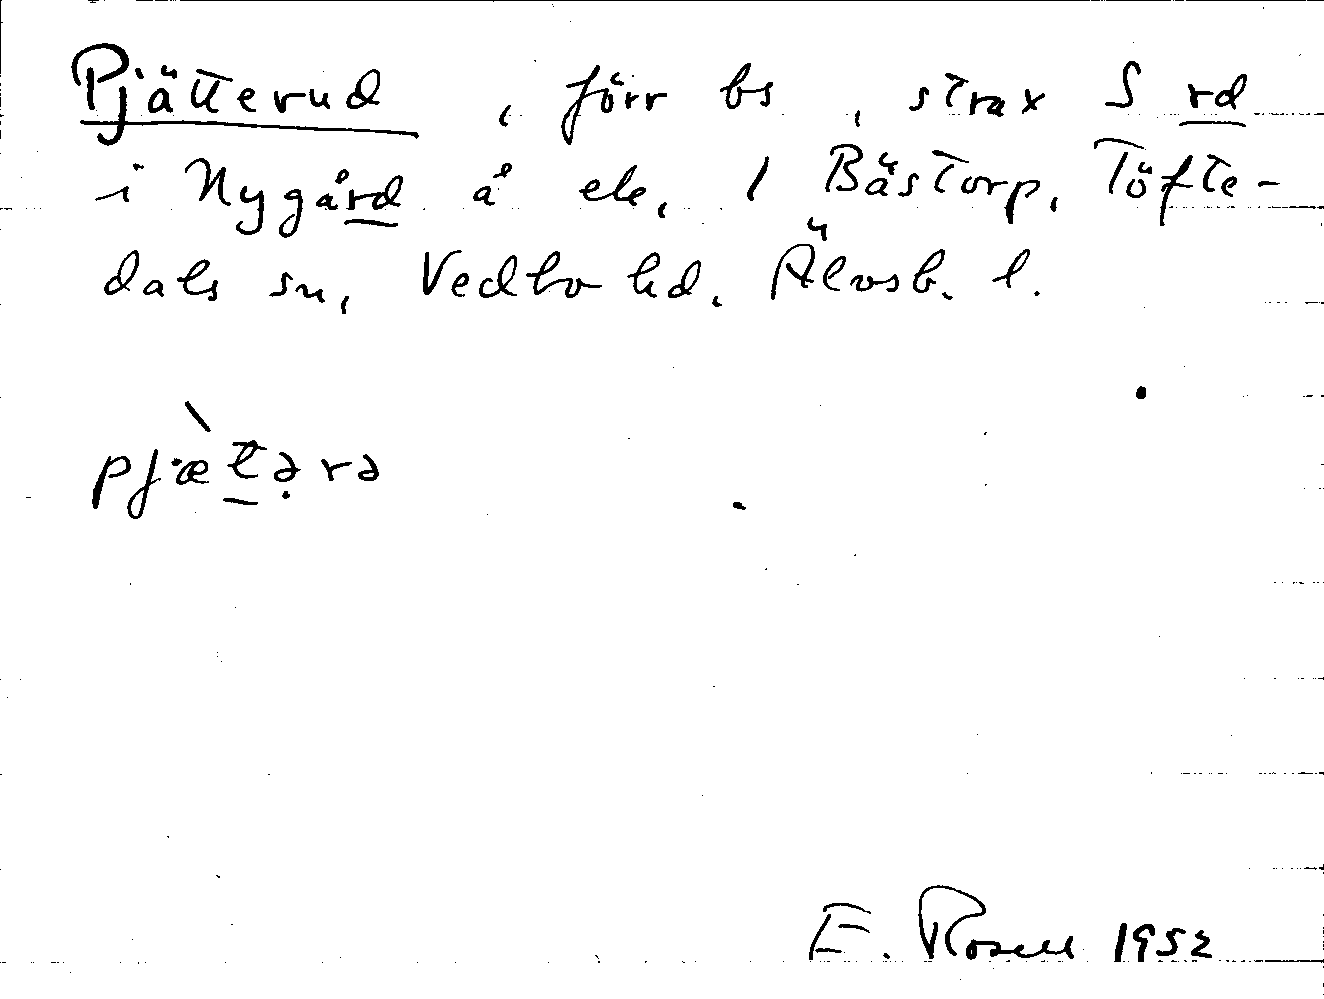 Pjätterud, förr bs, strax S rd
i Nygård å ek, 1 Bästorp, Töfte-
dals sn, Vedbo hd, Älvsb. l.
pjæ̀tərə
E. Rosell 1952